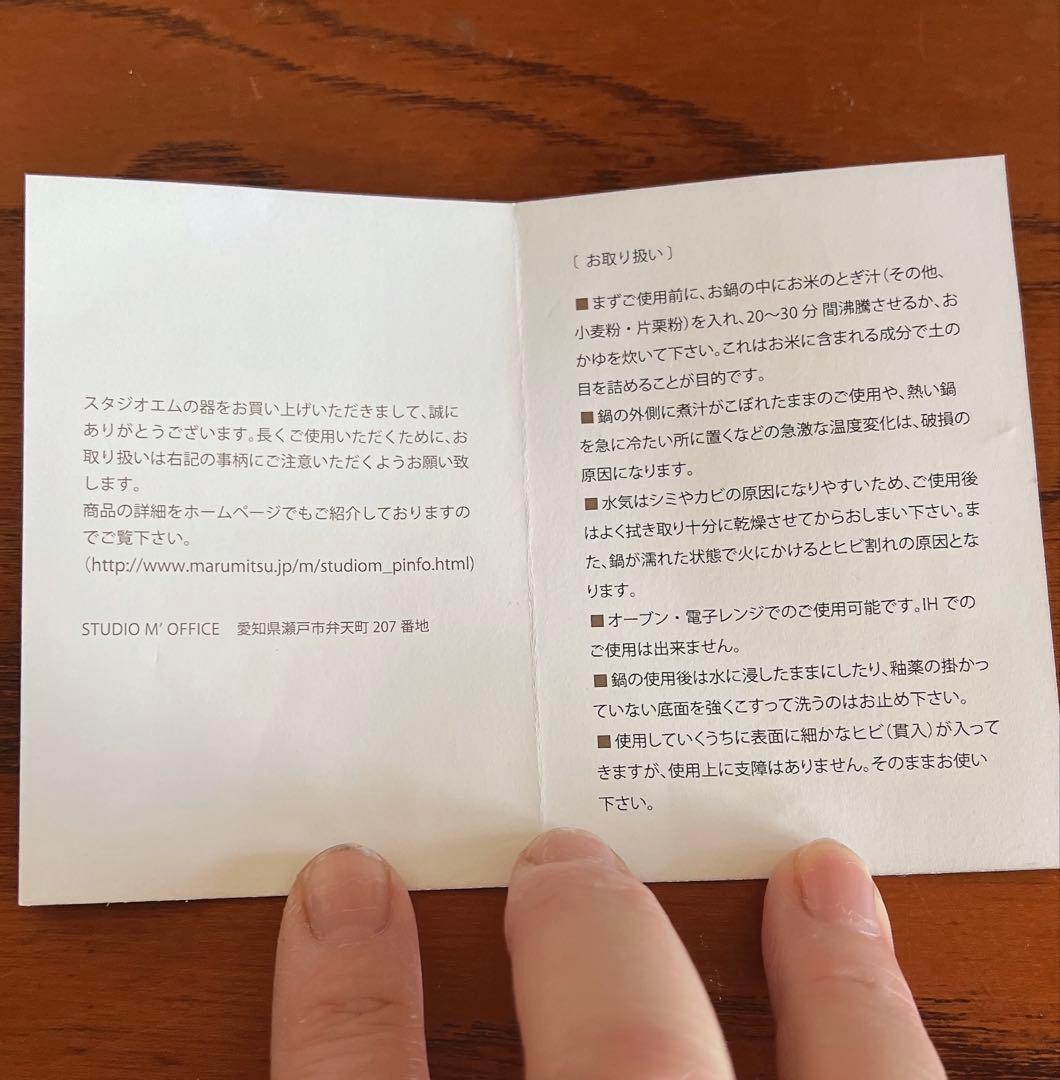 スタジオエムの器をお買い上げいただきまして、誠に
ありがとうございます。長くご使用いただくために、お
取り扱いは右記の事柄にご注意いただくようお願い致
します。
商品の詳細をホームページでもご紹介しておりますの
でご覧下さい。
(http://www.marumitsu.jp/m/studiom_pinfo.html)
STUDIO M' OFFICE 愛知県瀬戸市弁天町 207 番地
〔 お取り扱い 〕
■まずご使用前に、お鍋の中にお米のとぎ汁（その他、
小麦粉・片栗粉）を入れ、20〜30 分 間沸騰させるか、お
かゆを炊いて下さい。これはお米に含まれる成分で土の
目を詰めることが目的です。
■鍋の外側に煮汁がこぼれたままのご使用や、熱い鍋
を急に冷たい所に置くなどの急激な温度変化は、破損の
原因になります。
■水気はシミやカビの原因になりやすいため、ご使用後
はよく拭き取り十分に乾燥させてからおしまい下さい。ま
た、鍋が濡れた状態で火にかけるとヒビ割れの原因とな
ります。
■オーブン・電子レンジでのご使用可能です。IH での
ご使用は出来ません。
■鍋の使用後は水に浸したままにしたり、釉薬の掛かっ
ていない底面を強くこすって洗うのはお止め下さい。
■使用していくうちに表面に細かなヒビ（貫入）が入って
きますが、使用上に支障はありません。そのままお使い
下さい。